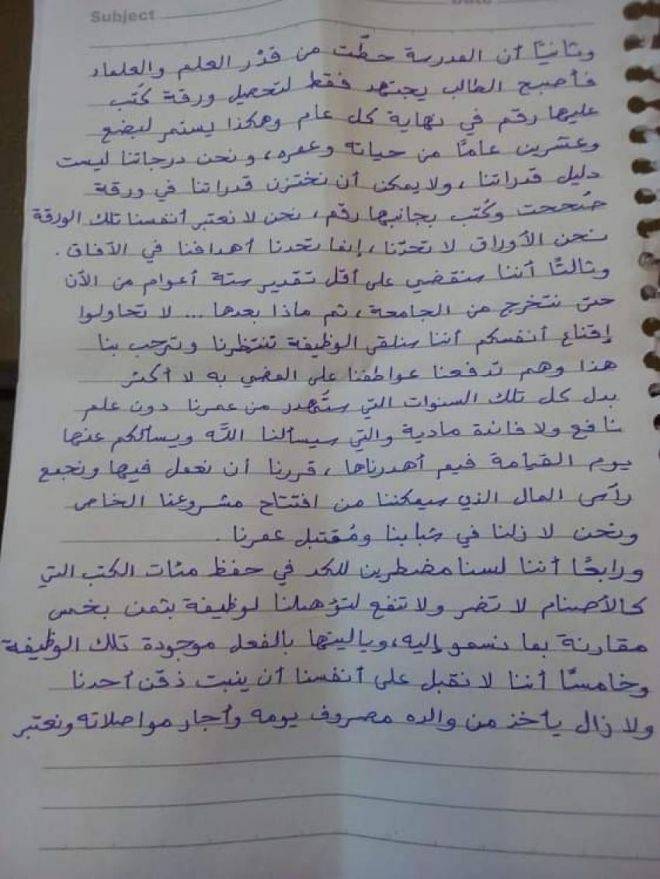 Subject
Date
وثانيًا أن المدرسة حطّت من قدْر العلم والعلماء
فأصبح الطالب يجتهد فقط لتحصيل ورقة كُتب
عليها رقم في نهاية كل عام وهكذا يستمر لبضع
وعشرين عامًا من حياته وعمره، ونحن درجاتنا ليست
دليل قدراتنا، ولا يمكن أن نختزن قدراتنا في ورقة
صُححت وكُتب بجانبها رقم، نحن لا نعتبر أنفسنا تلك الورقة
نحن الأوراق لا تحدّنا، إنما تحدنا أهدافنا في الآفاق.
وثالثًا أننا سنقضي على أقل تقدير ستة أعوام من الآن
حتى نتخرج من الجامعة، ثم ماذا بعدها... لا تحاولوا
إقناع أنفسكم أننا سنلقى الوظيفة تنتظرنا وترحب بنا
هذا وهم تدفعنا عواطفنا على المضي به لا أكثر
بدل كل تلك السنوات التي ستُهدر من عمرنا دون علم
نافع ولا فائدة مادية والتي سيسألنا اللّه ويسألكم عنها
يوم القيامة فيم أهدرناها، قررنا أن نعمل فيها ونجمع
رأس المال الذي سيمكننا من افتتاح مشروعنا الخاص
ونحن لا زلنا في شبابنا ومُقتبل عمرنا.
ورابعًا أننا لسنا مضطرين للكد في حفظ مئات الكتب التي
كالأصنام لا تضر ولا تنفع لتؤهلنا لوظيفة بثمن بخس
مقارنة بما نسمو إليه، وياليتها بالفعل موجودة تلك الوظيفة
وخامسًا أننا لا نقبل على أنفسنا أن ينبت ذقن أحدنا
ولا زال يأخذ من والده مصروف يومه وأجار مواصلاته ونعتبر